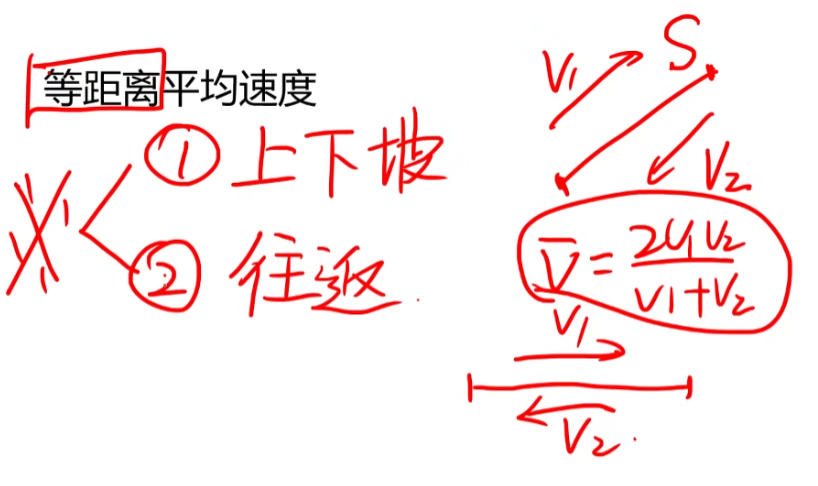 等距离平均速度
※ ① 上下坡
② 往返
S
V₁
V₂
V̄ = 2V₁V₂ / (V₁+V₂)
V₁
V₂